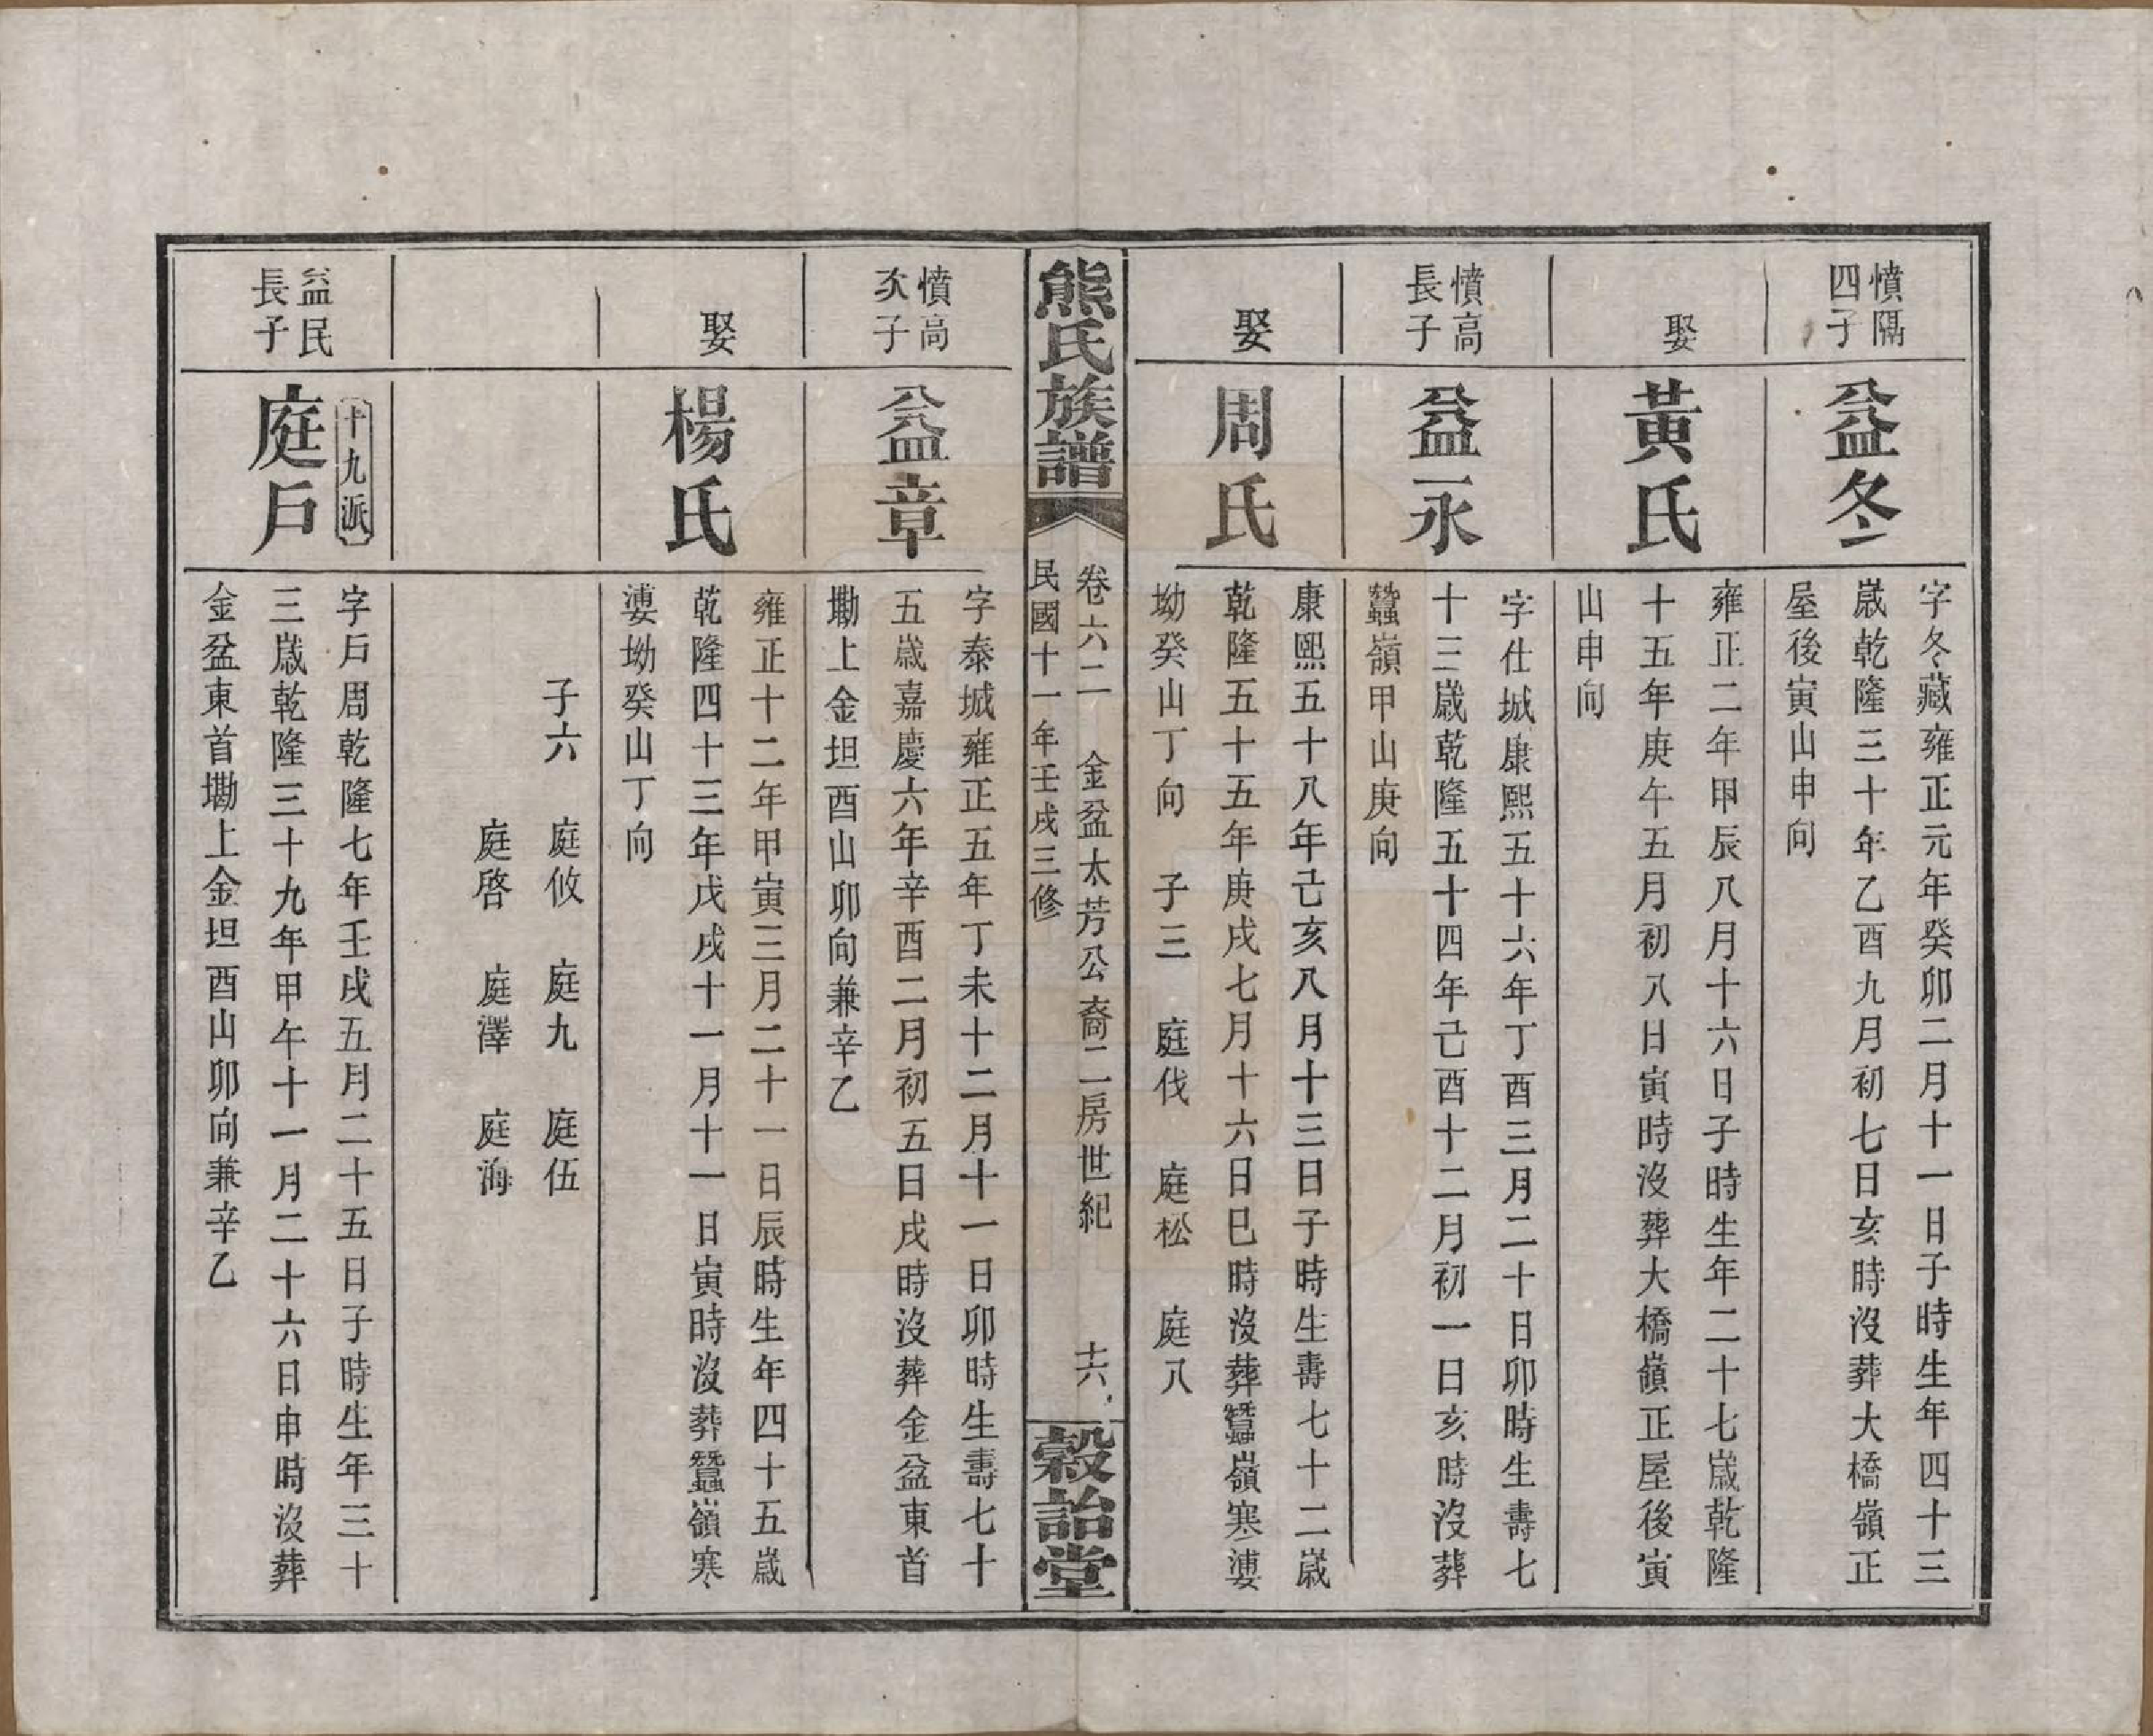 憤隔
四子
益冬
字冬藏雍正元年癸卯二月十一日子時生年四十三
歲乾隆三十年乙酉九月初七日亥時沒葬大橋嶺正
屋後寅山申向
娶
黃氏
雍正二年甲辰八月十六日子時生年二十七歲乾隆
十五年庚午五月初八日寅時沒葬大橋嶺正屋後寅
山申向
憤高
長子
益永
字仕城康熙五十六年丁酉三月二十日卯時生壽七
十三歲乾隆五十四年己酉十二月初一日亥時沒葬
蠶嶺甲山庚向
娶
周氏
康熙五十八年己亥八月十三日子時生壽七十二歲
乾隆五十五年庚戌七月十六日巳時沒葬蠶嶺寒婆
坳癸山丁向 子三 庭伐 庭松 庭八
熊氏族譜
卷六二 金盆太芳公裔二房世紀 十六
民國十一年壬戌三修
穀詒堂
憤高
次子
益章
字泰城雍正五年丁未十二月十一日卯時生壽七十
五歲嘉慶六年辛酉二月初五日戌時沒葬金盆東首
墈上金坦酉山卯向兼辛乙
娶
楊氏
雍正十二年甲寅三月二十一日辰時生年四十五歲
乾隆四十三年戊戌十一月十一日寅時沒葬蠶嶺寒
婆坳癸山丁向
子六 庭攸 庭九 庭伍
庭啓 庭澤 庭海
益民
長子
十九派
庭戶
字戶周乾隆七年壬戌五月二十五日子時生年三十
三歲乾隆三十九年甲午十一月二十六日申時沒葬
金盆東首墈上金坦酉山卯向兼辛乙